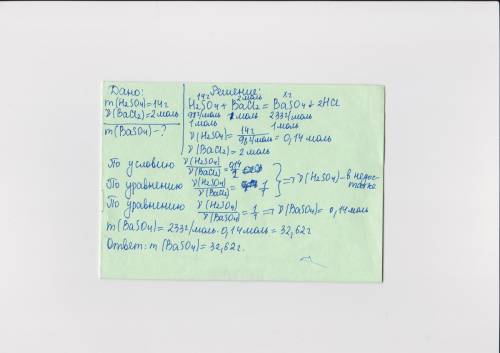 Дано:
m(H2SO4)=14г
ν(BaCl2)=2моль
m(BaSO4)-?
Решение:
14г 2моль xг
H2SO4+BaCl2=BaSO4+2HCl
98г/моль 1моль 233г/моль
1моль 1моль
ν(H2SO4)=14г/98г/моль=0,14моль
ν(BaCl2)=2моль
По условию ν(H2SO4)/ν(BaCl2)=0,14/2
По уравнению ν(H2SO4)/ν(BaCl2)= 1 => ν(H2SO4)-в недостатке
По уравнению ν(H2SO4)/ν(BaSO4)=1/1 => ν(BaSO4)=0,14моль
m(BaSO4)=233г/моль·0,14моль=32,62г
Ответ: m(BaSO4)=32,62г.